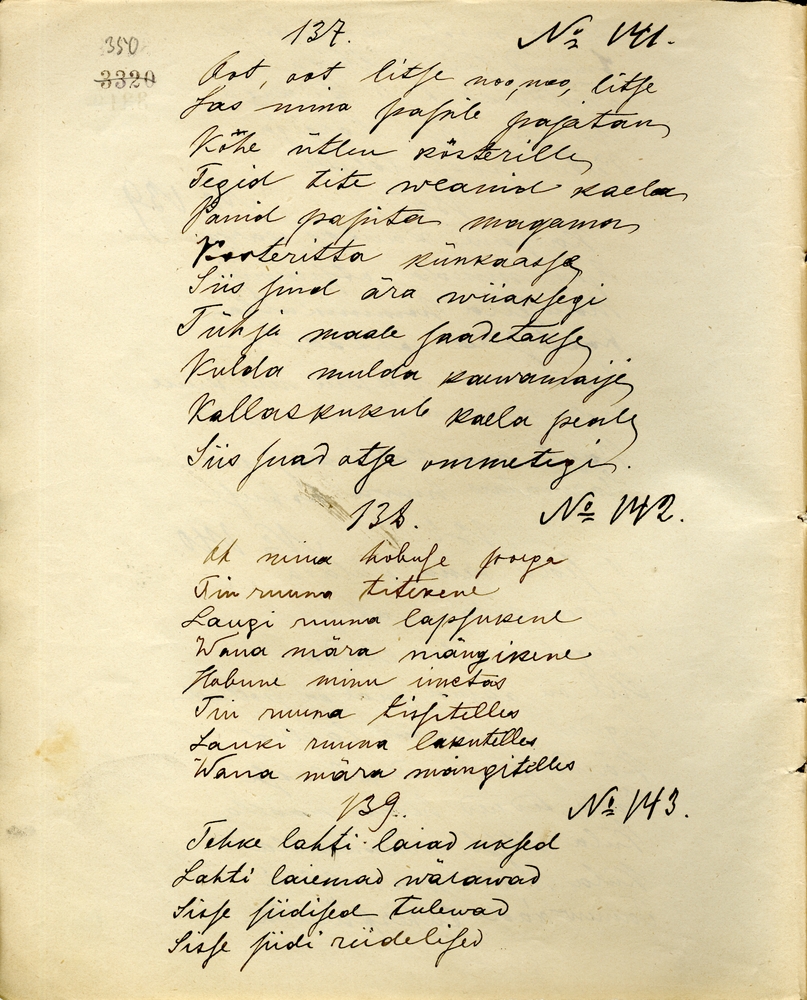 350
3320
137. № 141.
Oot, oot litse noo, noo, litse
Las mina papile pajatan
Kõhe ütlen kösterille
Tegid tite weanid kaela
Panid papita magama
Koosteritta künkaasse
Siis sind ära wiiaksegi
Tühja maale saadetakse
Kulda mulda kaewamaije
Kallaskukub kaela peale
Siis suad otsa ommetigi.
138. № 142.
Ok mina hobuse poega
Tiu ruuna titekene
Laugi ruuna lapsukene
Wana mära mängikene
Hobune minu imetas
Tiu ruuna tissitelles
Lauki ruuna lakutelles
Wana mära mängitelles
139. № 143.
Tehke lahti laiad uksed
Lahti laiemad wärawad
Sisse siidised tulewad
Sisse siidi riidelised